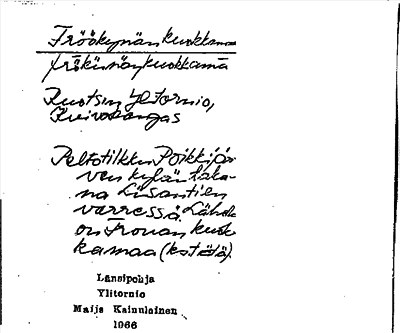 Fröökynänkuokkamaa
Ruotsin Ylitornio,
Kuivakangas
Peltotilkku Poikkijär-
ven kylän taka-
na Liisantien
varressa. Lähde
on Frouan kuok-
kamaa (ks tätä).
Länsipohja
Ylitornio
Maija Kainulainen
1966